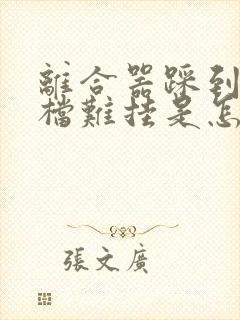 離合器踩到
檔難挂是怎
張文廣